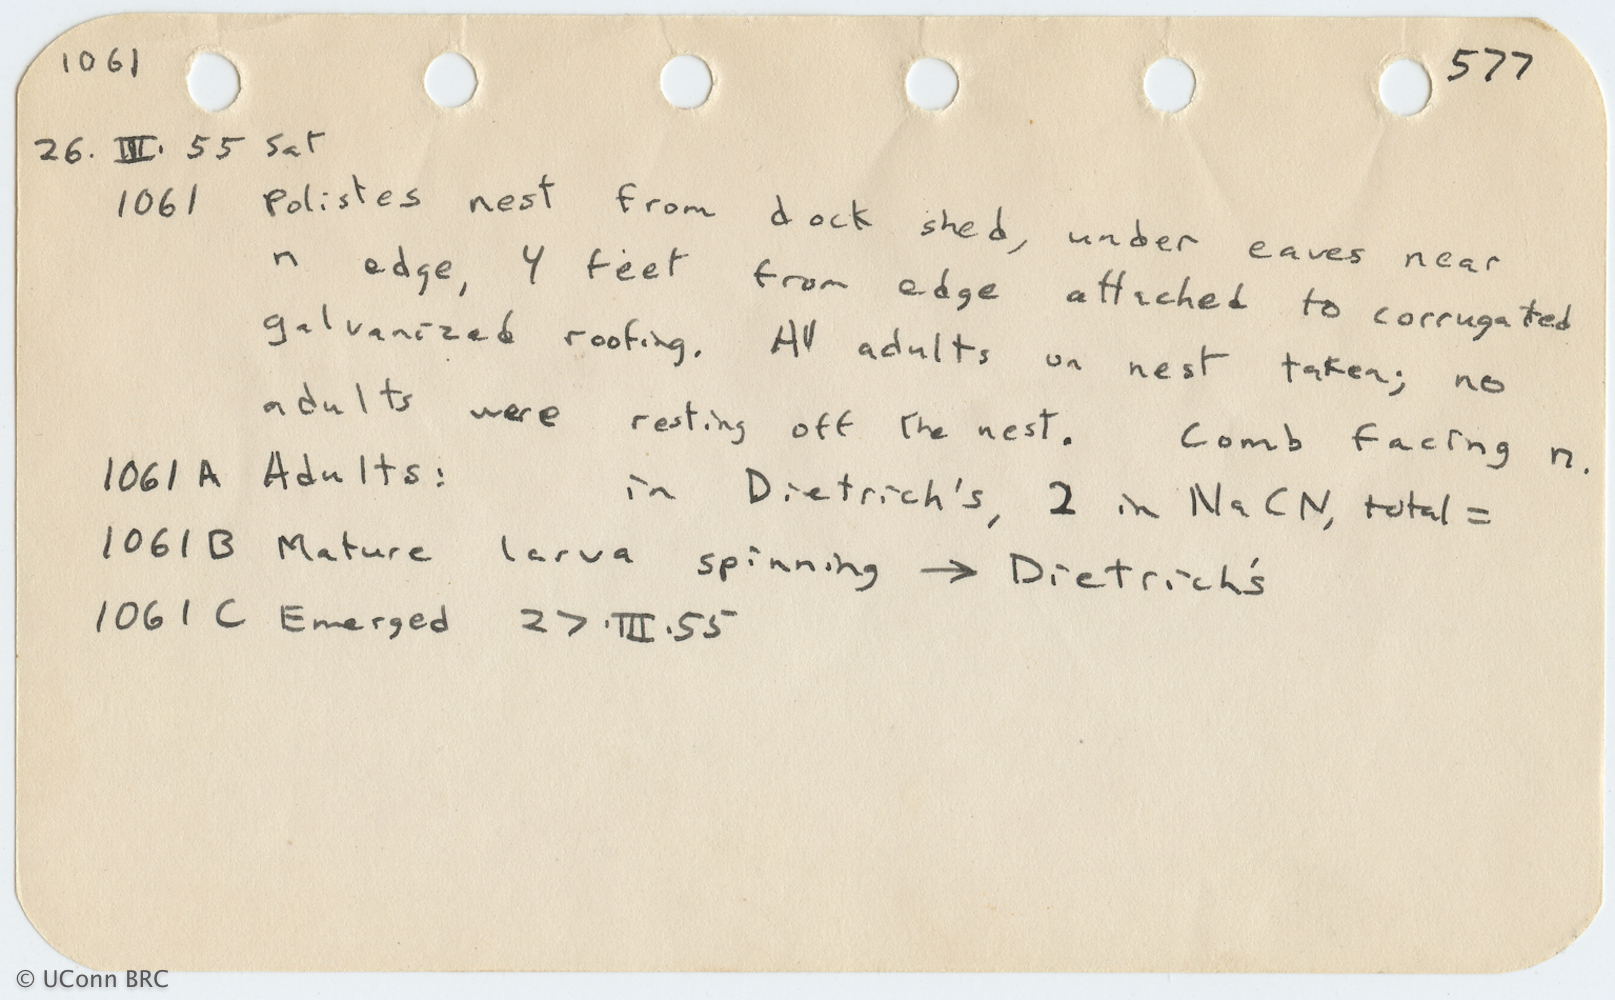 1061 577
26. III. 55 Sat
1061 Polistes nest from dock shed, under eaves near
n edge, 4 feet from edge attached to corrugated
galvanized roofing. All adults on nest taken; no
adults were resting off the nest. Comb facing n.
1061 A Adults: in Dietrich's, 2 in NaCN, total =
1061 B Mature larva spinning → Dietrich's
1061 C Emerged 27.III.55
© UConn BRC